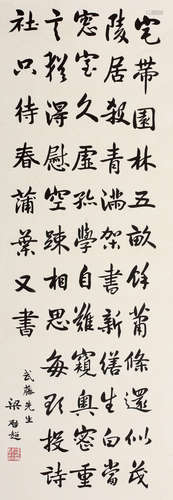 宅帶園林五畝餘蕭條還似茂
陵居殺青滿架書新繕生白當
窓室久虛孤學自難窺奧密重
言猶得慰空踈相思每欲投詩
社只待春蒲葉又書
武藤先生
梁啟超